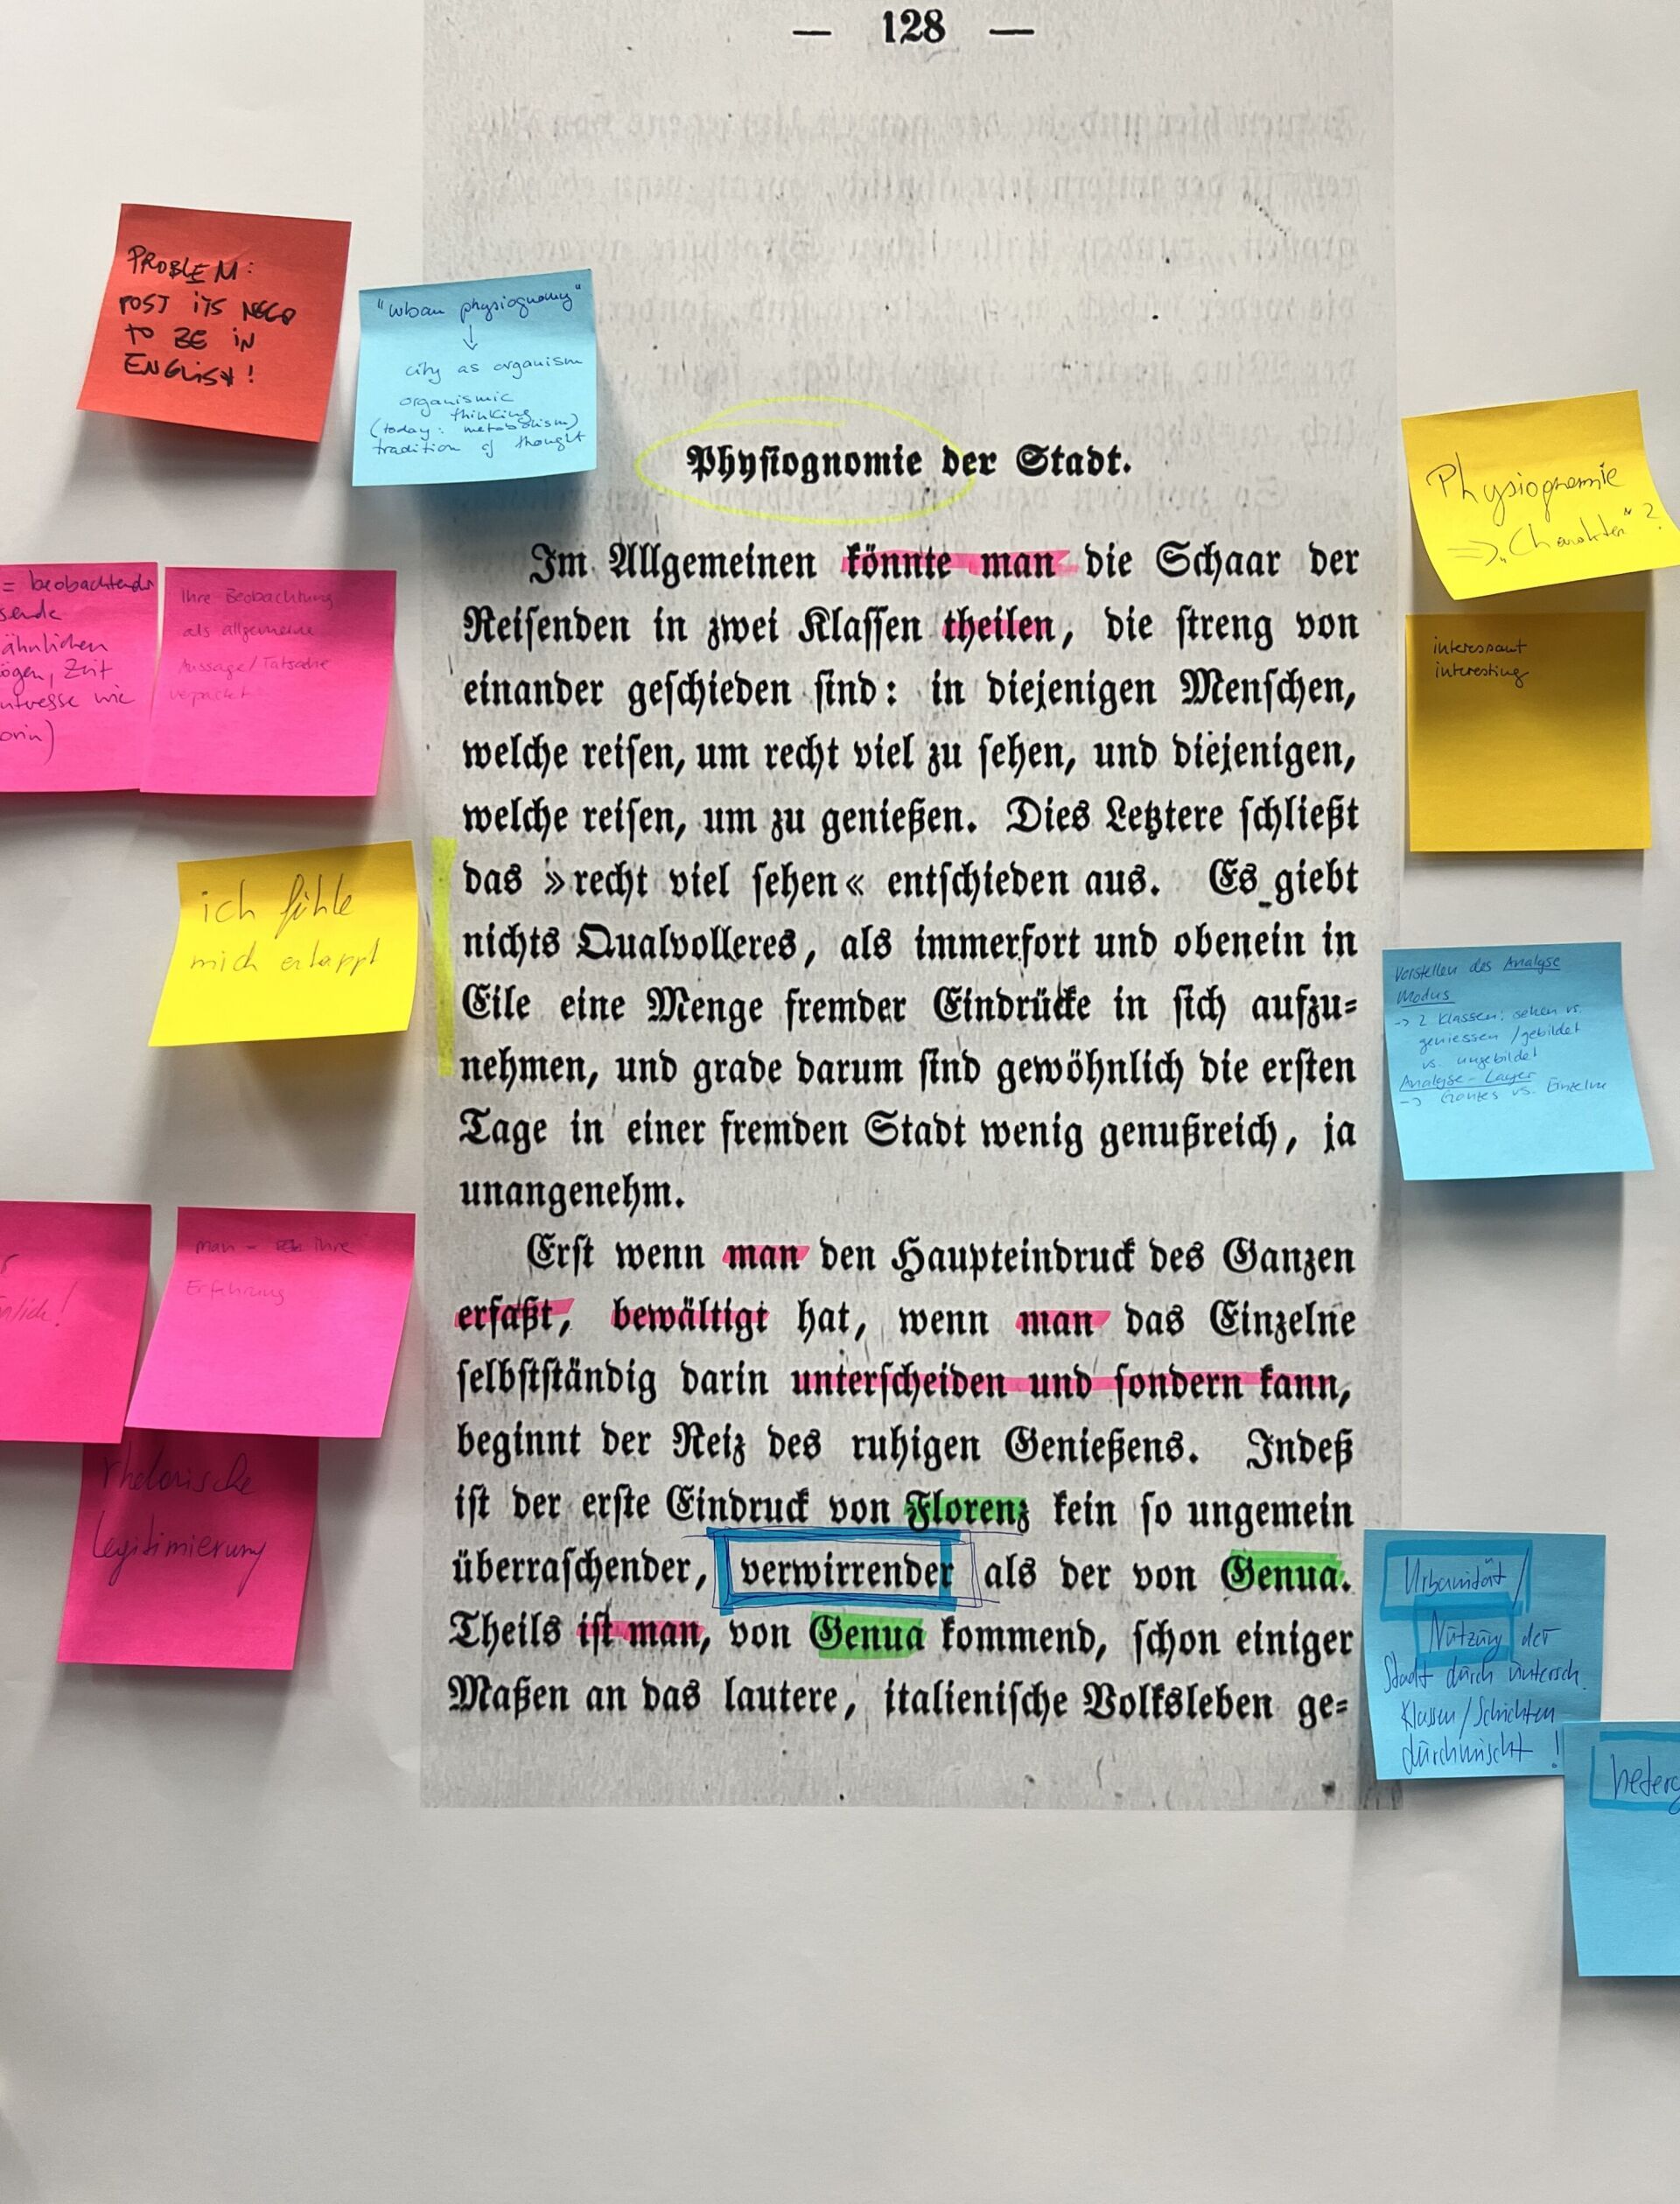 — 128 —
Physiognomie der Stadt.
Im Allgemeinen könnte man die Schaar der
Reisenden in zwei Klassen theilen, die streng von
einander geschieden sind: in diejenigen Menschen,
welche reisen, um recht viel zu sehen, und diejenigen,
welche reisen, um zu genießen. Dies Letztere schließt
das »recht viel sehen« entschieden aus. Es giebt
nichts Qualvolleres, als immerfort und obenein in
Eile eine Menge fremder Eindrücke in sich aufzu=
nehmen, und grade darum sind gewöhnlich die ersten
Tage in einer fremden Stadt wenig genußreich, ja
unangenehm.
Erst wenn man den Haupteindruck des Ganzen
erfaßt, bewältigt hat, wenn man das Einzelne
selbstständig darin unterscheiden und sondern kann,
beginnt der Reiz des ruhigen Genießens. Indeß
ist der erste Eindruck von Florenz kein so ungemein
überraschender, verwirrender als der von Genua.
Theils ist man, von Genua kommend, schon einiger
Maßen an das lautere, italienische Volksleben ge=
PROBLEM:
POST ITS NEED
TO BE IN
ENGLISH!
"urban physiognomy"
↓
city as organism
organismic
thinking
(today: metabolism)
tradition of thought
= beobachtende
sende
ähnlichen
ögen, Zeit
nteresse wie
orin)
Ihre Beobachtung
als allgemeine
Aussage/Tatsache
verpackt
ich fühle
mich ertappt
nlich!
man = Ihre
Erfahrung
rhetorische
Legitimierung
Physiognomie
=> „Charakter" ?
interessant
interesting
Vorstellen des Analyse
Modus
-> 2 Klassen: sehen vs.
geniessen / gebildet
vs. ungebildet
Analyse-Layer
-> Ganzes vs. Einzelne
Urbanität /
Nutzung der
Stadt durch untersch.
Klassen/Schichten
durchmischt!
heterog